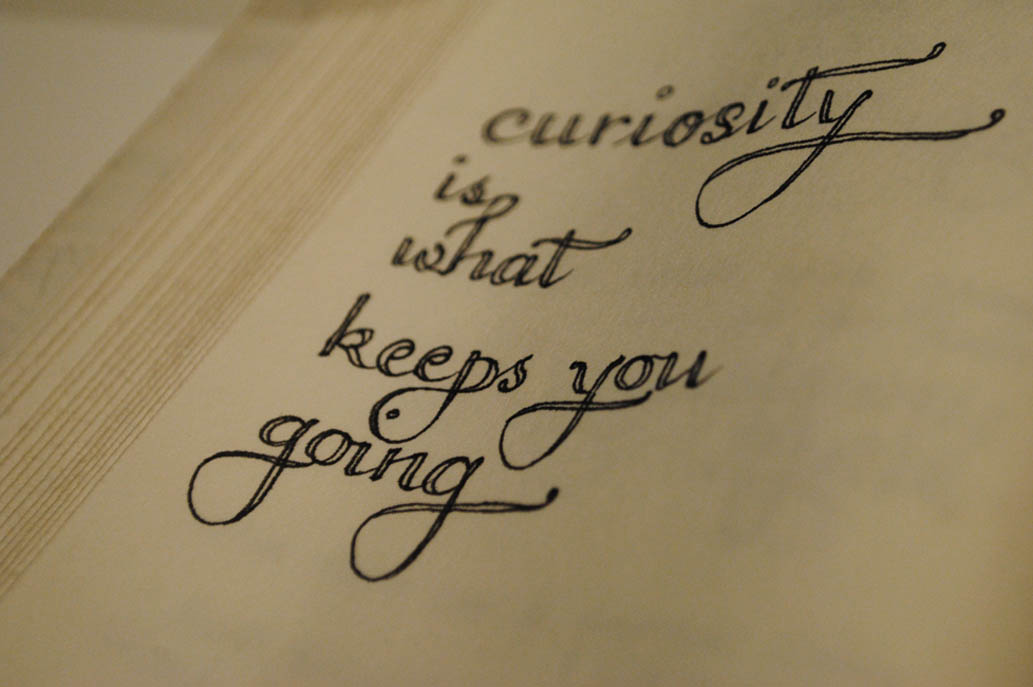 curiosity
is
what
keeps you
going